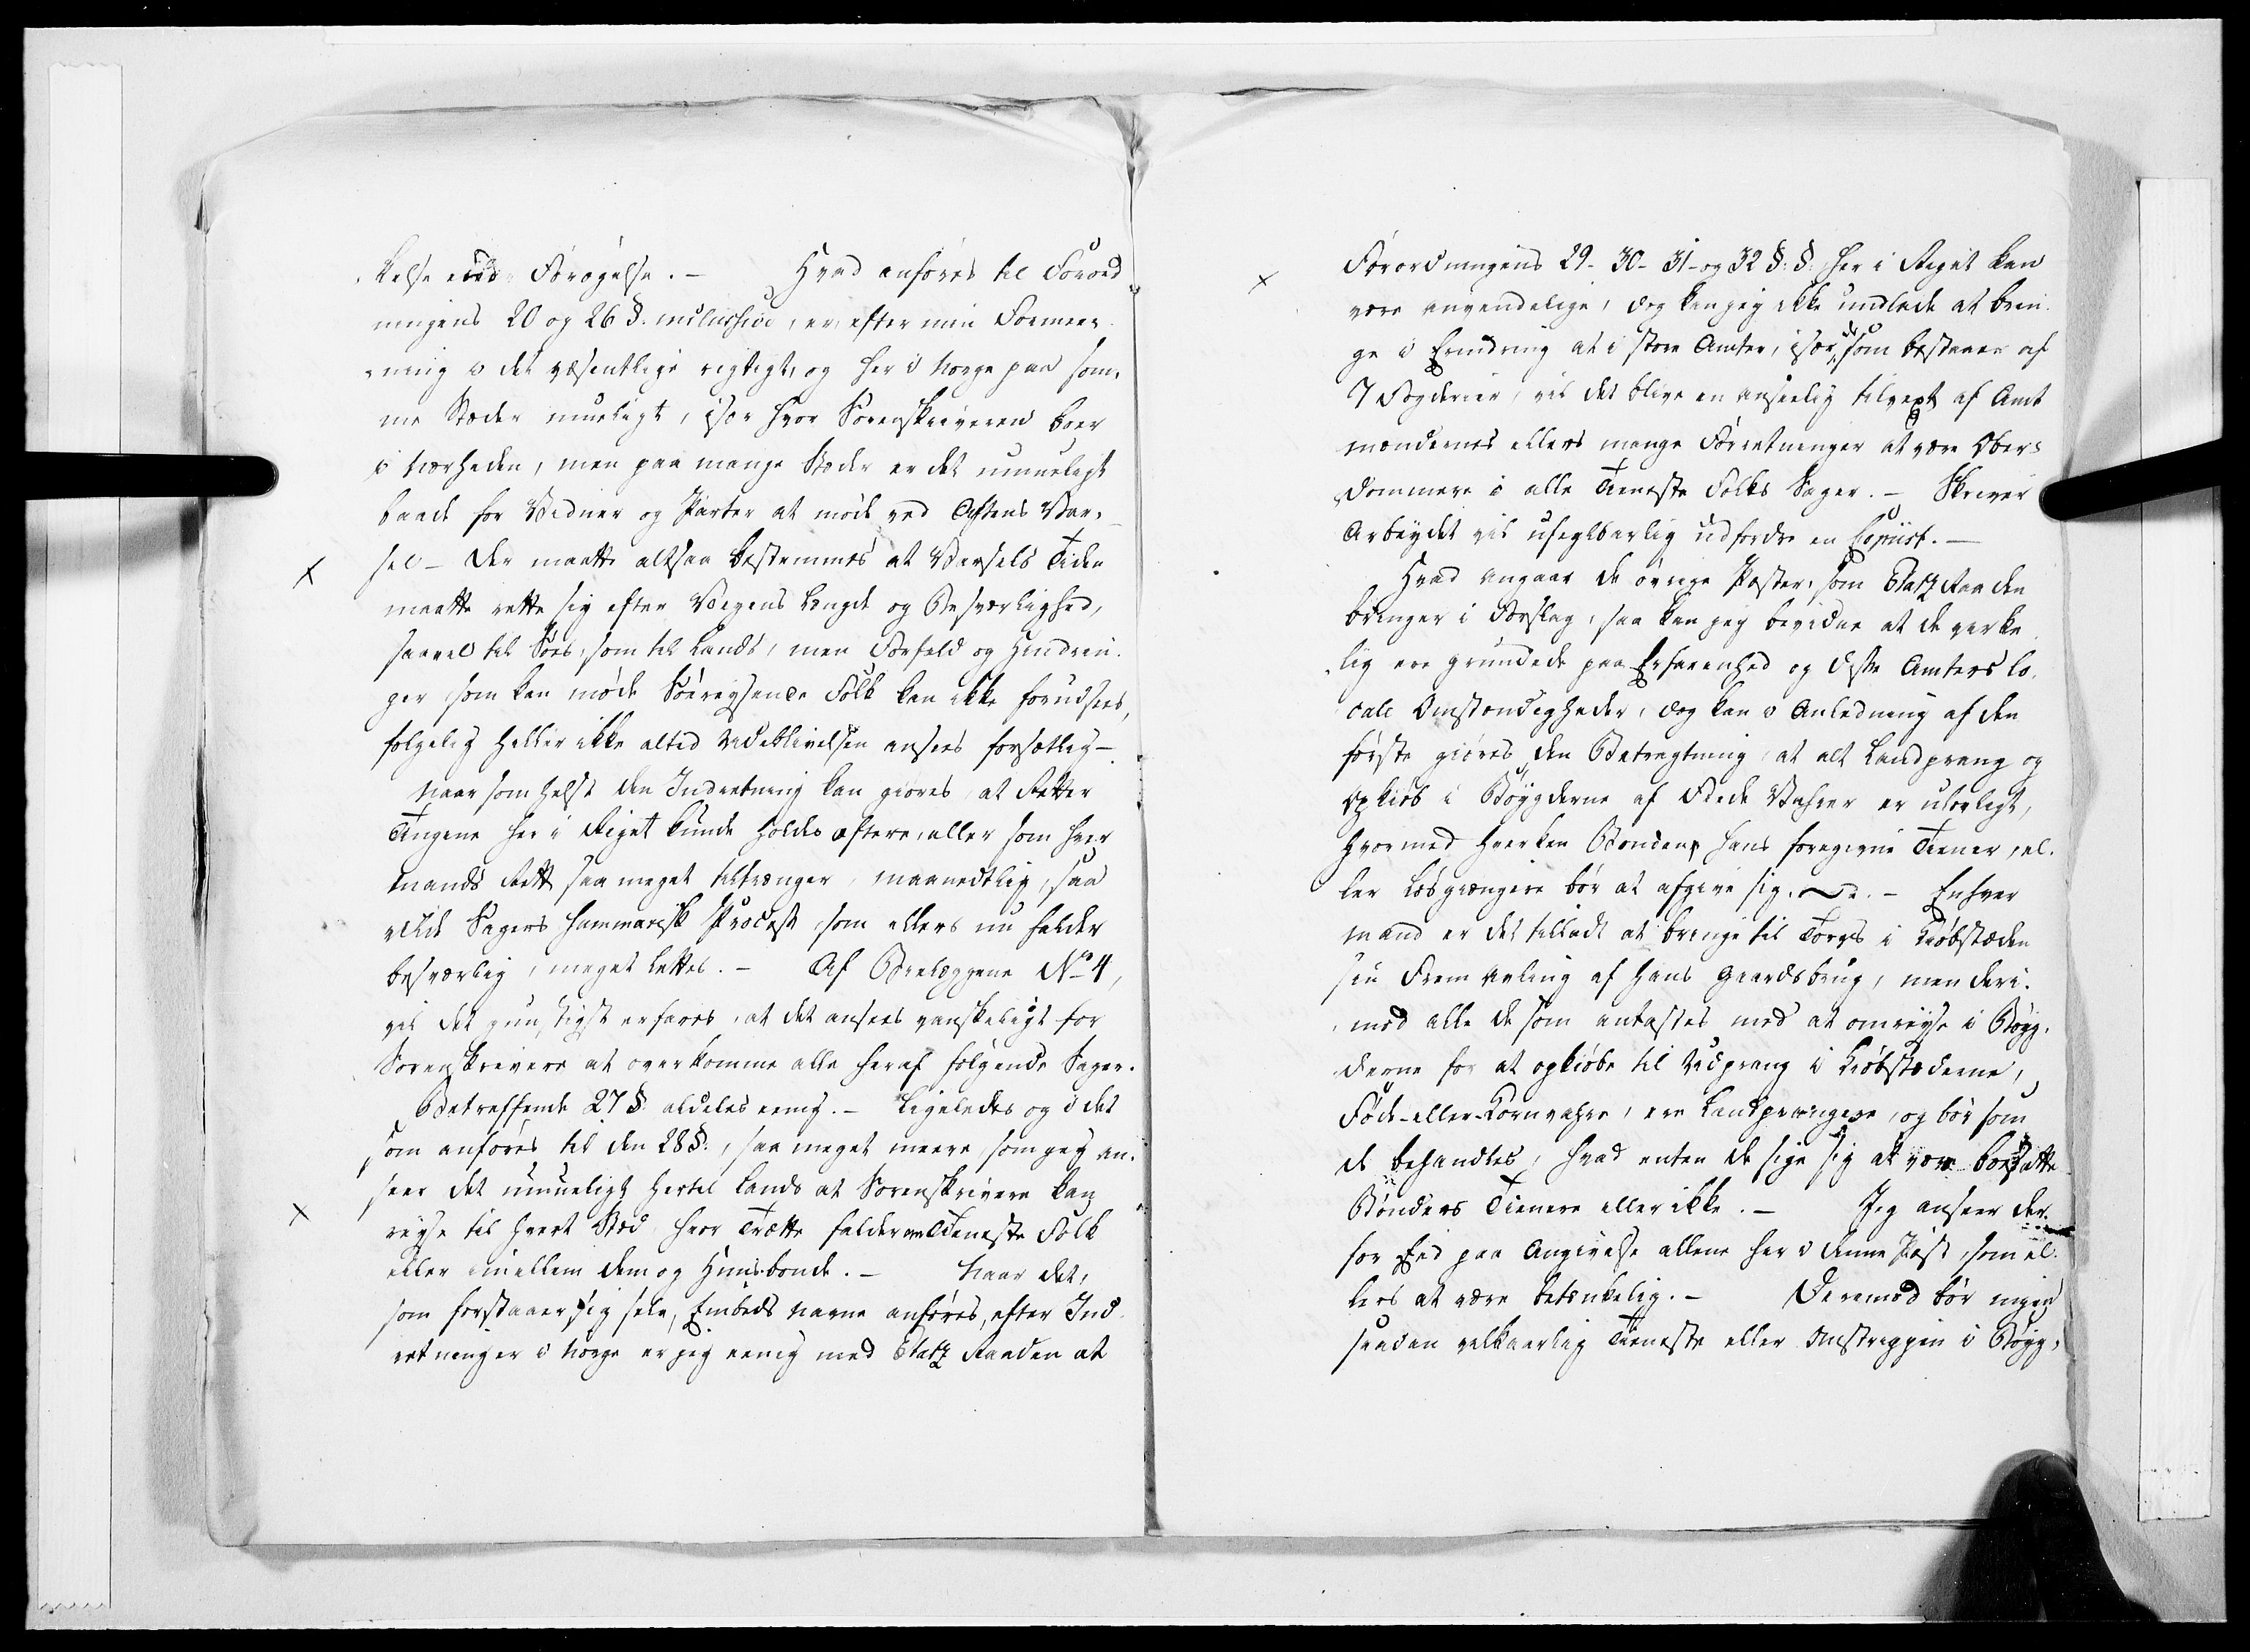 kelse eller Forøgelse. – Hvad anføres til Forord
ningens 20 og 26 §. inclusive, er, efter min Formee-
ning i det væsentlige rigtigt, og her i Norge paa som-
me Stæder mueligt, især hvor Sorenskriveren boer
i Nærheden, men paa mange Stæder er det umueligt
baade for Vidner og Parter at møde ved Aftens Var-
x sel – Der maatte altsaa bestemmes at Varsels Tiden
maatte rette sig efter Veyens Længde og Besværlighed,
saavel til Søes, som til Lands, men Forfald og Hindrin-
ger som kan møde Søereysende Folk kan ikke forudsees,
følgelig heller ikke altid Udeblivelsen ansees forsætlig –
Naar som helst den Indretning kan giøres at Rette
Tingene her i Riget kunde holdes oftere, eller som hver
Mands Rett saa meget tiltrænger, maanedtlig, saa
Sagers summarisk Process, som ellers nu falder
besværlig, meget lettes. – Af Bielæggene No 4,
vil det gunstigst erfares, at det ansees vanskeligt for
Sorenskrivere at overkomme alle heraf følgende Sager.
Betreffende 27 §. aldeles eenig. – Ligeledes og i det
som anføres til den 28 §:, saa meget meere, som jeg an-
seer det umueligt hertil Lands at Sorenskrivere kan
x reyse til hvert Stæd hvor Trætte falder om Tieneste Folk
eller imellem dem og Huusbonde. – Naar det,
som forstaaer sig selv, Embeds Navne anføres, efter Ind
retninger i Norge er jeg eenig med Etatz Raaden at
x Forordningens 29- 30- 31- og 32 §: §: her i Riget kan
være anvendelige, dog kan jeg ikke undlade at brin-
ge i Erindring at i store Amter, især de som bestaaer af
7 Fogderier, vil det blive en anseelig tilvext af Amt
mændernes ellers mange Forretninger at være Ober-
dommere i alle Tieneste Folks Sager. – Skriver
Arbeydet vil ufeylbarlig udfordre en Copiist. –
Hvad angaar de øvrige Poster, som Etatz Raaden
bringer i Forslag, saa kan jeg bevidne at de virke
lig ere grundede paa Erfarenhed og dette Amters lo-
cale Omstændigheder, dog kan i Anledning af den
første giøres den Betragtning at alt Landprang og
Opkiøb i Bøygderne af Føde Vahrer er ulovligt,
hvormed hverken Bonden, hans foregivne Tiener, el-
ler Løsgiængere bør at afgive sig. – Enhver
Mand er det tilladt at bringe til Torgs i Kiøbstæden
sin Fremavling af hans Gaardsbrug, men deri-
mod alle de som antastes med at omreyse i Bøyg-
derne for at opkiøbe til Udprang i Kiøbstæderne,
Føde- eller Kornvahre, ere Landprangere, og bør som
de behandles, hvad enten de sige sig at være boesatte
Bønders Tienere eller ikke. – Jeg anseer der-
for Eed paa Angivelse allene her i denne Post, som el-
lers at være betænkelig. – Deremod bør ingen
saadan vilkaarlig Tieneste eller Omstreyfen i Bøyg-